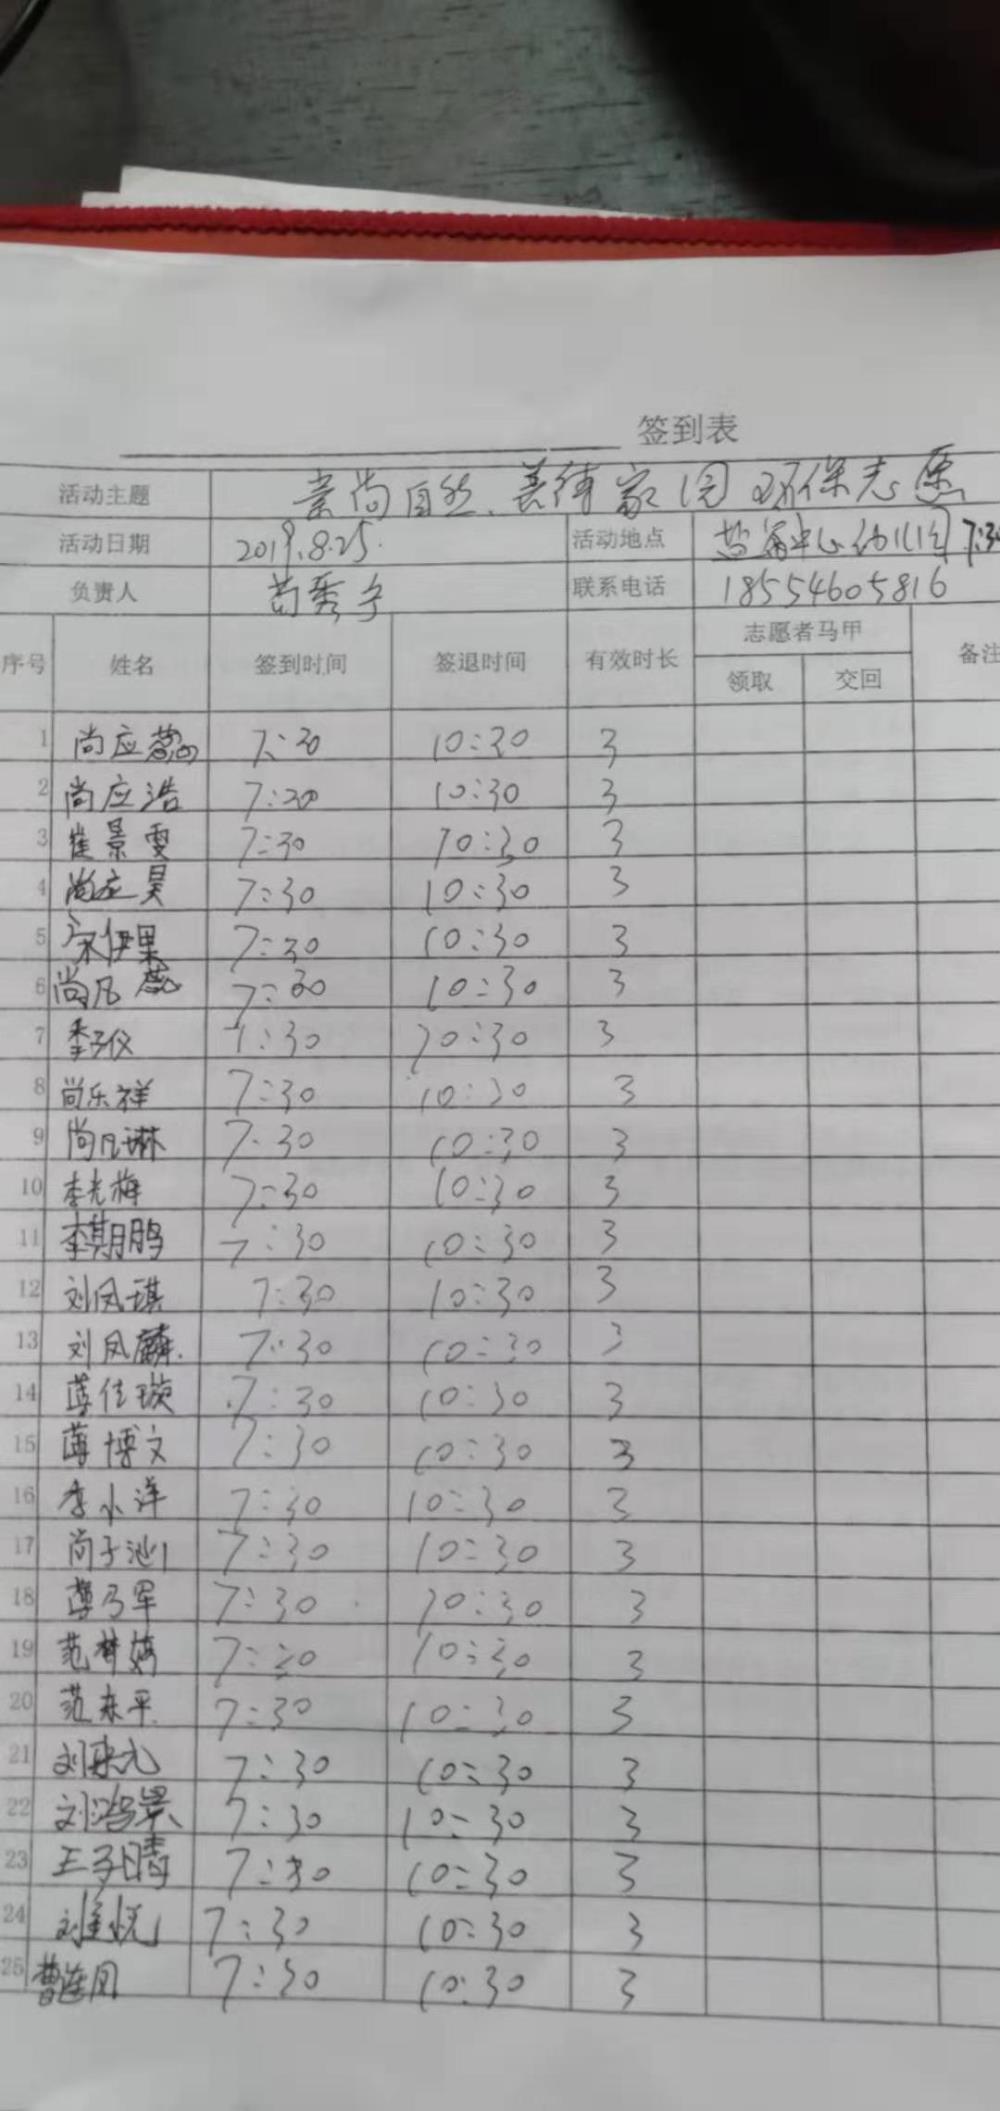 签到表
活动主题 崇尚自然、美德家园 环保志愿
活动日期 2019.8.25. 活动地点 盐窝中心幼儿园 7:30
负责人 联系电话 18554605816
序号 姓名 签到时间 签退时间 有效时长 志愿者马甲 备注
领取 交回
1 尚应蕊 7:30 10:30 3
2 尚应浩 7:30 10:30 3
3 崔景雯 7:30 10:30 3
4 尚应昊 7:30 10:30 3
5 宋伊果 7:30 10:30 3
6 尚凡蕊 7:30 10:30 3
7 季子仪 7:30 10:30 3
8 尚乐祥 7:30 10:30 3
9 尚凡琳 7:30 10:30 3
10 李光梅 7:30 10:30 3
11 李期鹏 7:30 10:30 3
12 刘凤琪 7:30 10:30 3
13 刘凤麟. 7:30 10:30 3
14 薄佳璇 7:30 10:30 3
15 薄博文 7:30 10:30 3
16 李小洋 7:30 10:30 3
17 尚子渺 7:30 10:30 3
18 薄乃军 7:30 10:30 3
19 范梦婷 7:30 10:30 3
20 范东平 7:30 10:30 3
21 刘来元 7:30 10:30 3
22 刘鸿景 7:30 10:30 3
23 王子晴 7:30 10:30 3
24 7:30 10:30 3
25 曹莲凤 7:30 10:30 3